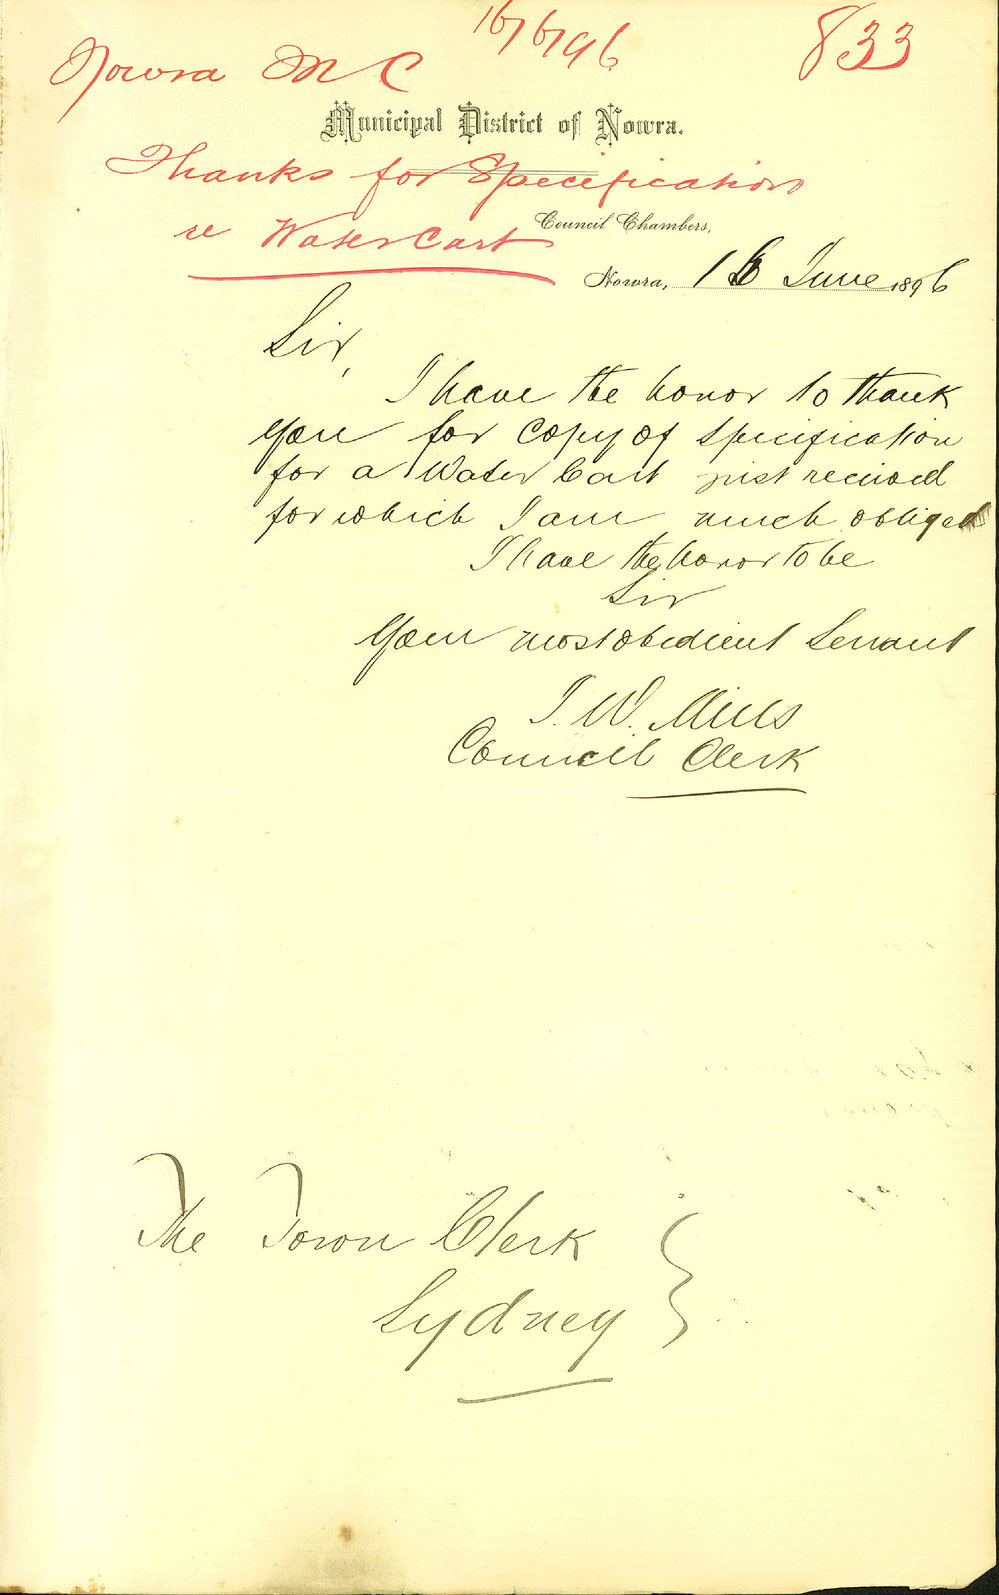 16/6/96 833
Nowra M C
Municipal District of Nowra.
Thanks for Specification
re Water Cart
Council Chambers,
Nowra, 16 June 1896
Sir,
I have the honor to thank
you for copy of specification
for a Water Cart just received
for which I am much obliged
I have the honor to be
Sir
Your most obedient Servant
J. W. Mills
Council Clerk
The Town Clerk
Sydney